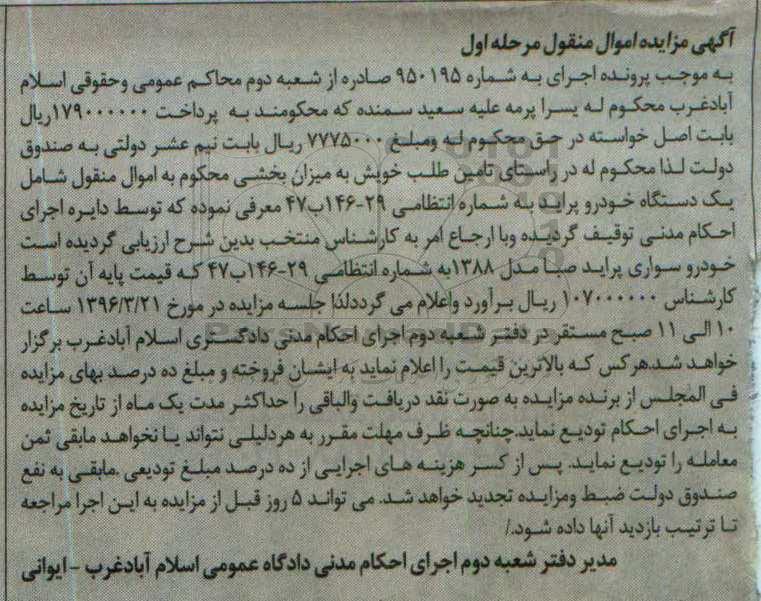 آگهی مزایده اموال منقول مرحله اول
به موجب پرونده اجرای به شماره ۹۵۰۱۹۵ صادره از شعبه دوم محاکم عمومی وحقوقی اسلام
آبادغرب محکوم له یسرا پرمه علیه سعید سمنده که محکومند به پرداخت ۱۷۹۰۰۰۰۰۰ریال
بابت اصل خواسته در حق محکوم له ومبلغ ۷۷۷۵۰۰۰ ریال بابت نیم عشر دولتی به صندوق
دولت لذا محکوم له در راستای تامین طلب خویش به میزان بخشی محکوم به اموال منقول شامل
یک دستگاه خودرو پراید به شماره انتظامی ۲۹-۱۴۶ب۴۷ معرفی نموده که توسط دایره اجرای
احکام مدنی توقیف گردیده وبا ارجاع امر به کارشناس منتخب بدین شرح ارزیابی گردیده است
خودرو سواری پراید صبا مدل ۱۳۸۸به شماره انتظامی ۲۹-۱۴۶ب۴۷ که قیمت پایه آن توسط
کارشناس ۱۰۷۰۰۰۰۰۰ ریال برآورد واعلام می گرددلذا جلسه مزایده در مورخ ۱۳۹۶/۳/۲۱ ساعت
۱۰ الی ۱۱ صبح مستقر در دفتر شعبه دوم اجرای احکام مدنی دادگستری اسلام آبادغرب برگزار
خواهد شد.هرکس که بالاترین قیمت را اعلام نماید به ایشان فروخته و مبلغ ده درصد بهای مزایده
فی المجلس از برنده مزایده به صورت نقد دریافت والباقی را حداکثر مدت یک ماه از تاریخ مزایده
به اجرای احکام تودیع نماید.چنانچه ظرف مهلت مقرر به هردلیلی نتواند یا نخواهد مابقی ثمن
معامله را تودیع نماید. پس از کسر هزینه های اجرایی از ده درصد مبلغ تودیعی .مابقی به نفع
صندوق دولت ضبط ومزایده تجدید خواهد شد. می تواند ۵ روز قبل از مزایده به این اجرا مراجعه
تا ترتیب بازدید آنها داده شود./
مدیر دفتر شعبه دوم اجرای احکام مدنی دادگاه عمومی اسلام آبادغرب - ایوانی